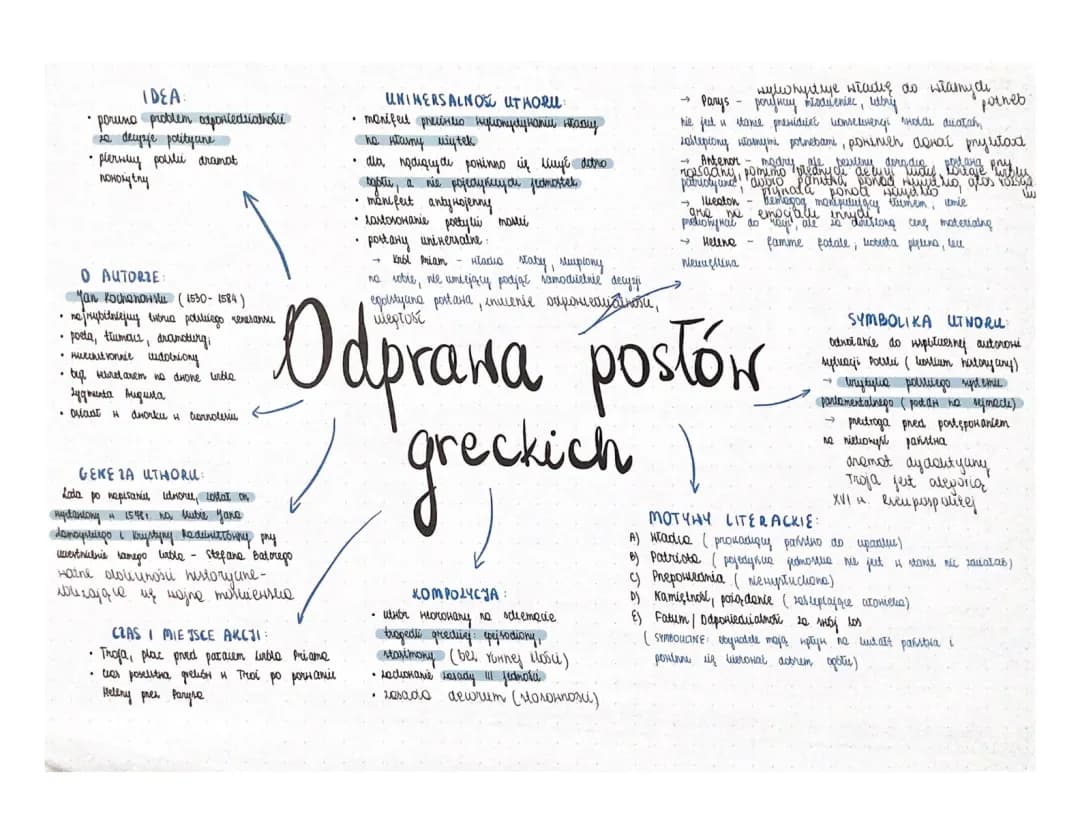 IDEA:
• porusza problem odpowiedzialności
za decyzje polityczne
• pierwszy polski dramat
nowożytny
UNIWERSALNOŚĆ UTWORU:
• manifest przeciwko wykorzystywaniu władzy
na własny użytek
• dla rządzących powinno się liczyć dobro
ogółu, a nie pojedynczych jednostek
• manifest antywojenny
• zastosowanie postylii maski
• postawy uniwersalne:
→ Król Priam - władca słaby, skupiony
na sobie, nie umiejący podjąć samodzielnie decyzji
egoistyczna postawa, zrzucenie odpowiedzialności,
uległość
wykorzystuje władzę do własnych
→ Parys - porywczy młodzieniec, który potrzeb
nie jest w stanie przewidzieć konsekwencji swoich działań,
zaślepiony własnymi potrzebami, powinien dawać przykład
→ Antenor - mądry, ale bezsilny doradca, postawa przy
rozsądny, pomimo błędnych decyzji
patriotyczna, dobro państwa ponad wszystko, głos rozsądku
→ Iketaon - demagog manipulujący tłumem, umie
gra na emocjach innych
przekonywać do racji, ale za określoną cenę materialną
→ Helena - famme fatale, kobieta piękna, lecz
nieszczęśliwa
O AUTORZE:
Jan Kochanowski (1530-1584)
• najwybitniejszy twórca polskiego renesansu
• poeta, tłumacz, dramaturg,
• wszechstronnie uzdolniony
• był sekretarzem na dworze króla
Zygmunta Augusta
• osiadł w dworku w Czarnolesiu
Odprawa posłów
greckich
SYMBOLIKA UTWORU:
odwołanie do współczesnej autorowi
sytuacji Polski (kostium historyczny)
→ krytyka polskiego systemu
parlamentalnego (posłów na sejmach)
→ przestroga przed postępowaniem
na niekorzyść państwa
dramat dydaktyczny
Troja jest alegorią
XVI w. Rzeczpospolitej
GENEZA UTWORU:
Lata po napisaniu utworu, został on
wystawiony w 1578r. na ślubie Jana
Zamoyskiego i Krystyny Radziwiłłówny przy
uczestnictwie samego króla - Stefana Batorego
ważne okoliczności historyczne-
zbliżająca się wojna moskiewska
MOTYWY LITERACKIE:
A) Władca (prowadzący państwo do upadku)
B) Patriota (pojedyncza jednostka nie jest w stanie nic zdziałać)
C) Przepowiednia (niewysłuchana)
D) Namiętność, pożądanie (zaślepiające człowieka)
E) Fatum/Odpowiedzialność za swój los
(SYMBOLICZNE: obywatele mają wpływ na kształt państwa i
powinni się kierować dobrem ogółu)
CZAS I MIEJSCE AKCJI:
• Troja, plac przed pałacem króla Priama
• czas poselstwa greków w Troi po porwaniu
Heleny przez Parysa
KOMPOZYCJA:
• utwór wzorowany na schemacie
tragedii greckiej: epejsodiony,
stasimony (bez równej ilości)
• zachowanie zasady III jedności
• zasada decorum (stosowności)